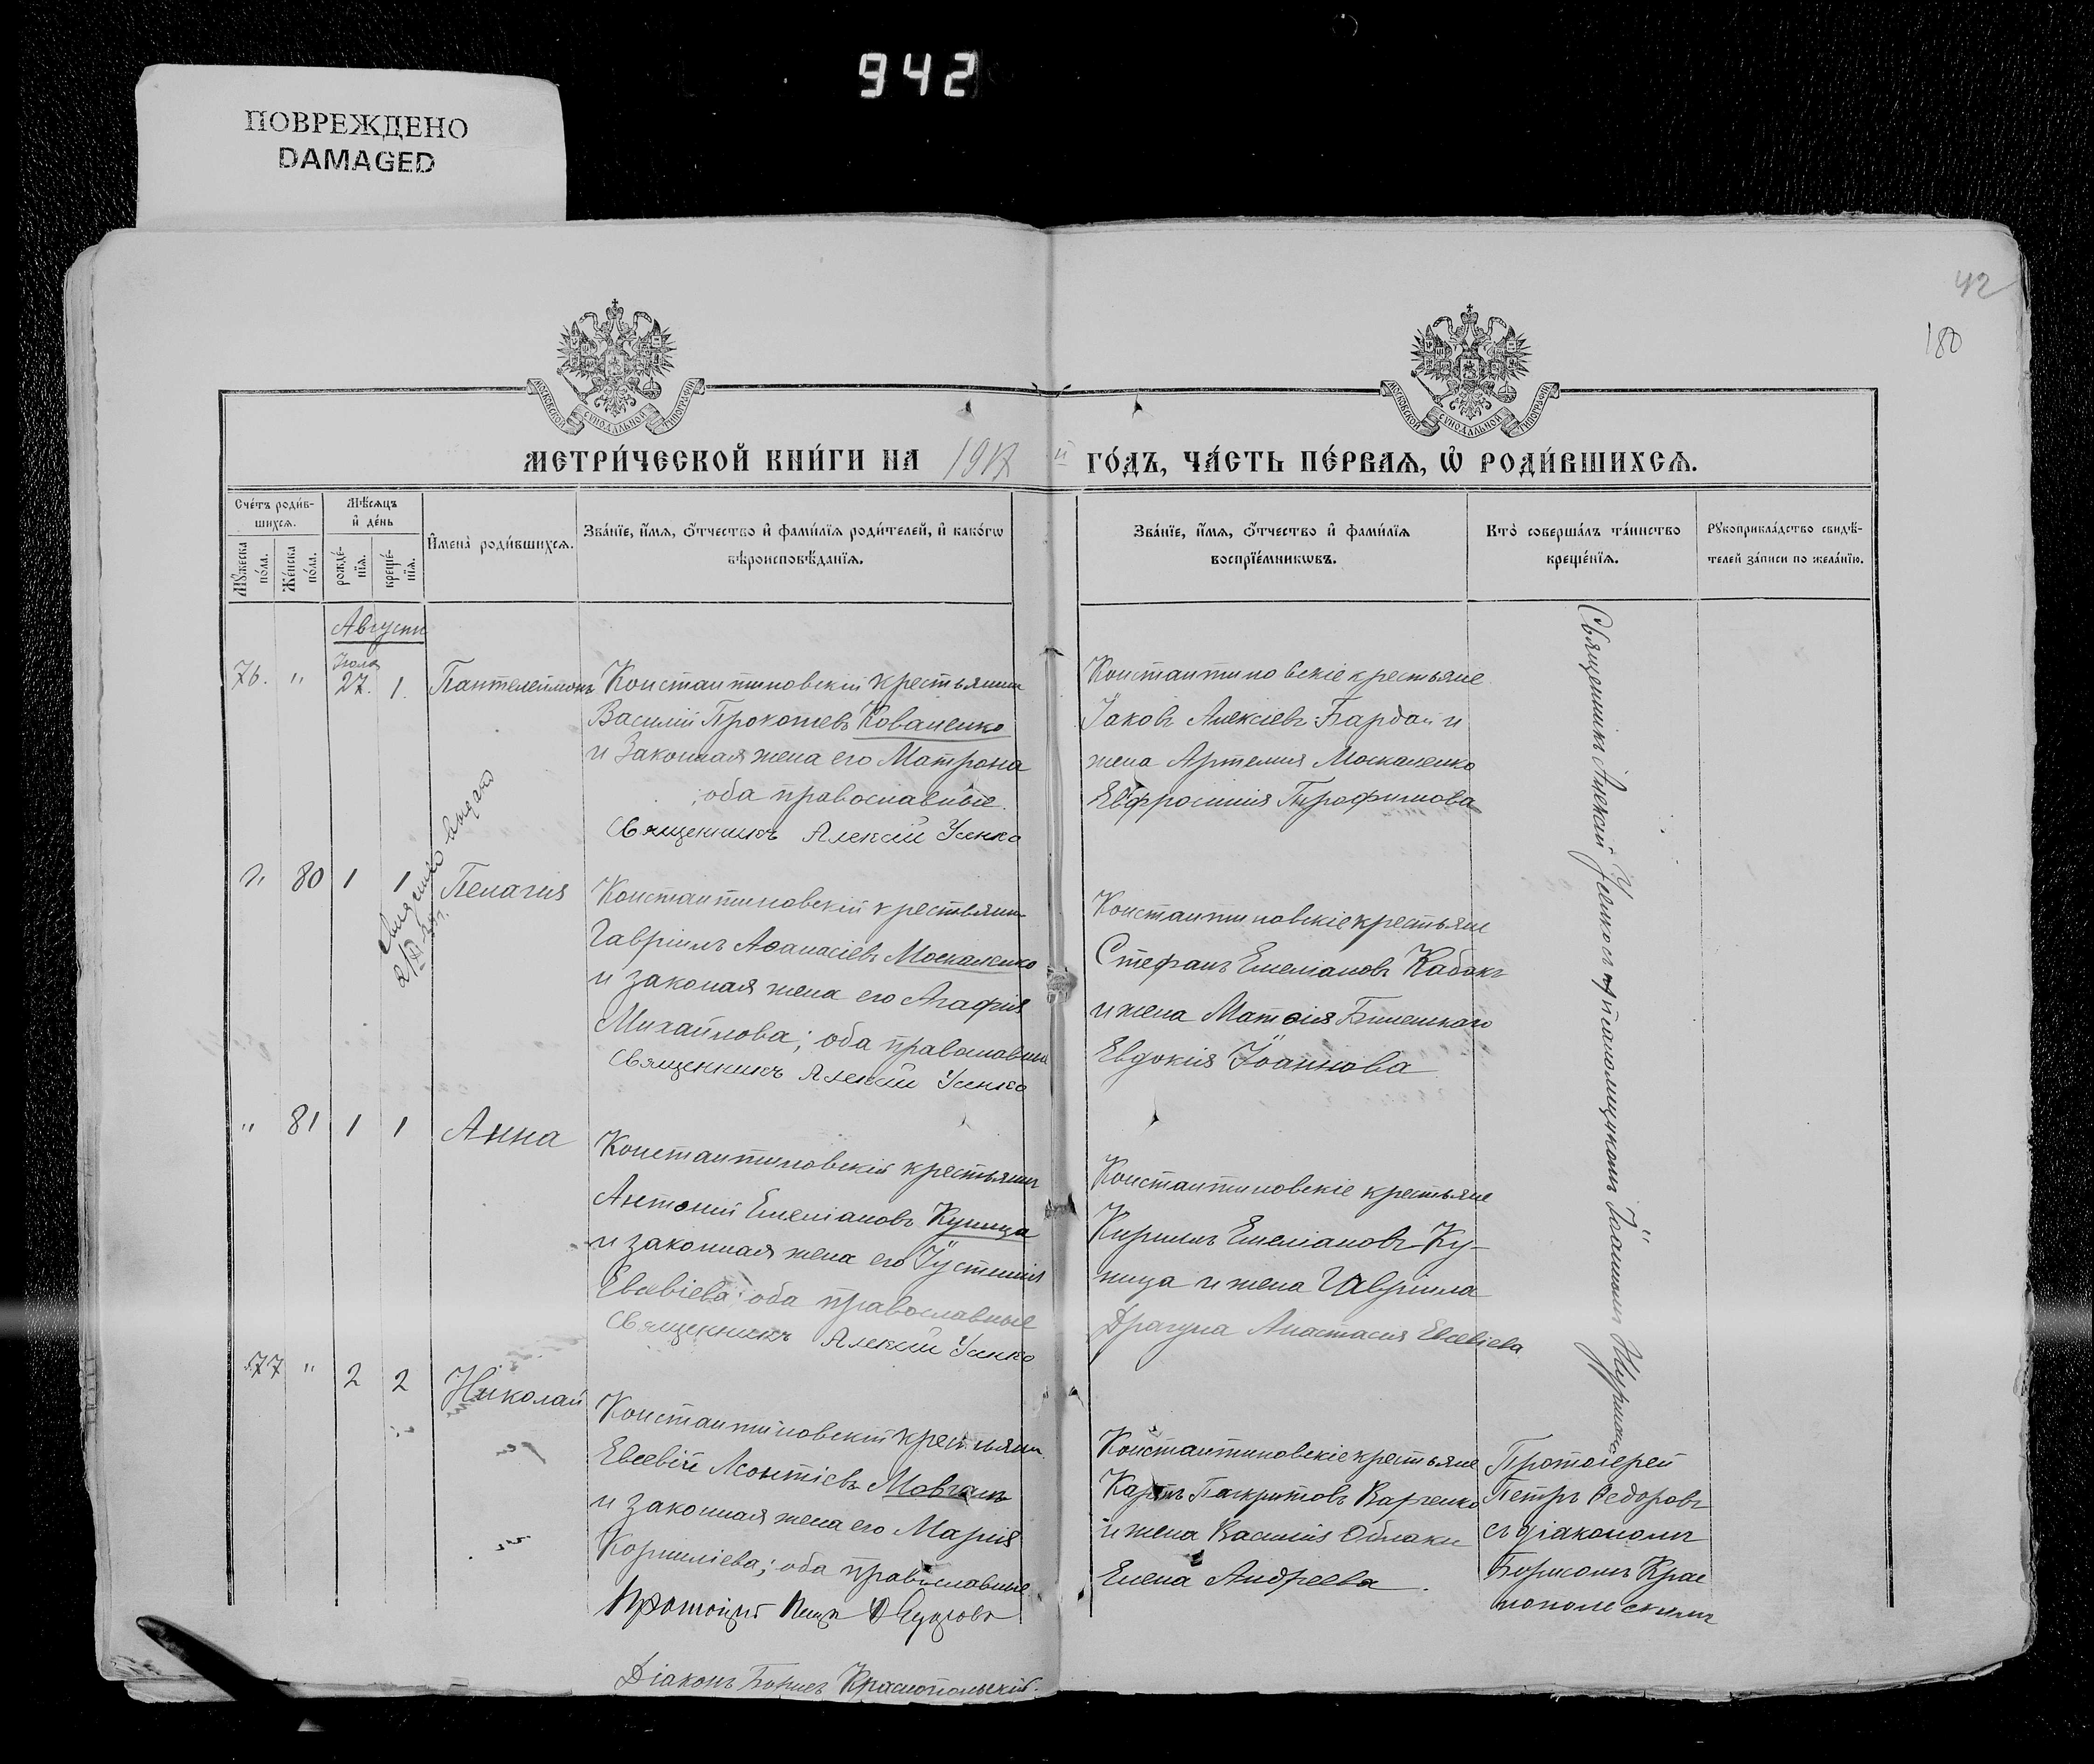 942
ПОВРЕЖДЕНО
DAMAGED
42
180
МОСКОВСКОЙ СѴНОДАЛЬНОЙ ТИПОГРАФІИ
МОСКОВСКОЙ СѴНОДАЛЬНОЙ ТИПОГРАФІИ
МЕТРИ́ЧЕСКОЙ КНИ́ГИ НА 191
ГО́ДЪ, ЧА́СТЬ ПЕ́РВАѦ, Ѡ҆ РОДИ́ВШИХСѦ.
Сче́тъ роди́в-
шихсѧ.
Мꙋ́жеска
по́ла.
Же́нска
по́ла.
Мѣ́сѧцъ
и҆ де́нь
рожде́-
нїѧ.
креще́-
нїѧ.
И҆мена̀ роди́вшихсѧ.
Зва́нїе, и҆́мѧ, ѻ҆́тчество и҆ фами́лїѧ роди́телей, и҆ како́гѡ
вѣроисповѣ́данїѧ.
Зва́нїе, и҆́мѧ, ѻ҆́тчество и҆ фами́лїѧ
воспрїе́мникѡвъ.
Кто̀ соверша́лъ та́инство
креще́нїѧ.
Рꙋкоприкла́дство свидѣ́-
телей за́писи по жела́нїю.
Августъ
76. " Іюля 27. 1. Пантелеимонъ
Константиновскій крестьянинъ
Василій Прокопіевъ Коваленко
и законная жена его Матрона
оба православные.
Священникъ Алексій Усенко
Константиновскіе крестьяне
Іаковъ Алексіевъ Бардак и
жена Артемія Москаленко
Евфросинія Трофимова
" 80 1 1 Пелагія
Константиновскій крестьянинъ
Гавріилъ Аѳанасіевъ Москаленко
и законая жена его Агафія
Михайлова; оба православные
Священникъ Алексій Усенко
Константиновскіе крестьяне
Стефанъ Емеліановъ Кабакъ
и жена Матѳія
Евдокія Іоаннова
" 81 1 1 Анна
Константиновскій крестьянинъ
Антоній Емеліановъ Куница
и законная жена его Іустинія
Евсевіева; оба православные
Священникъ Алексій Усенко
Константиновскіе крестьяне
Кириллъ Емеліановъ Ку-
ница и жена Гавріила
Драгуна Анастасія Евсевіева
Священникъ Алексій Усенко съ псаломщикомъ Іоанномъ
77 " 2 2 Николай
Константиновскій крестьянинъ
Евсевій Леонтіевъ Мовчанъ
и законная жена его Марія
Корниліева; оба православные
Протоіерей Петръ Ѳедоровъ
Діаконъ Борисъ Краснопольскій.
Константиновскіе крестьяне
Карпъ Панкратовъ Харченко
и жена Василія
Елена Андреева.
Протоіерей
Петръ Ѳедоровъ
съ діакономъ
Борисомъ Крас
нопольскимъ